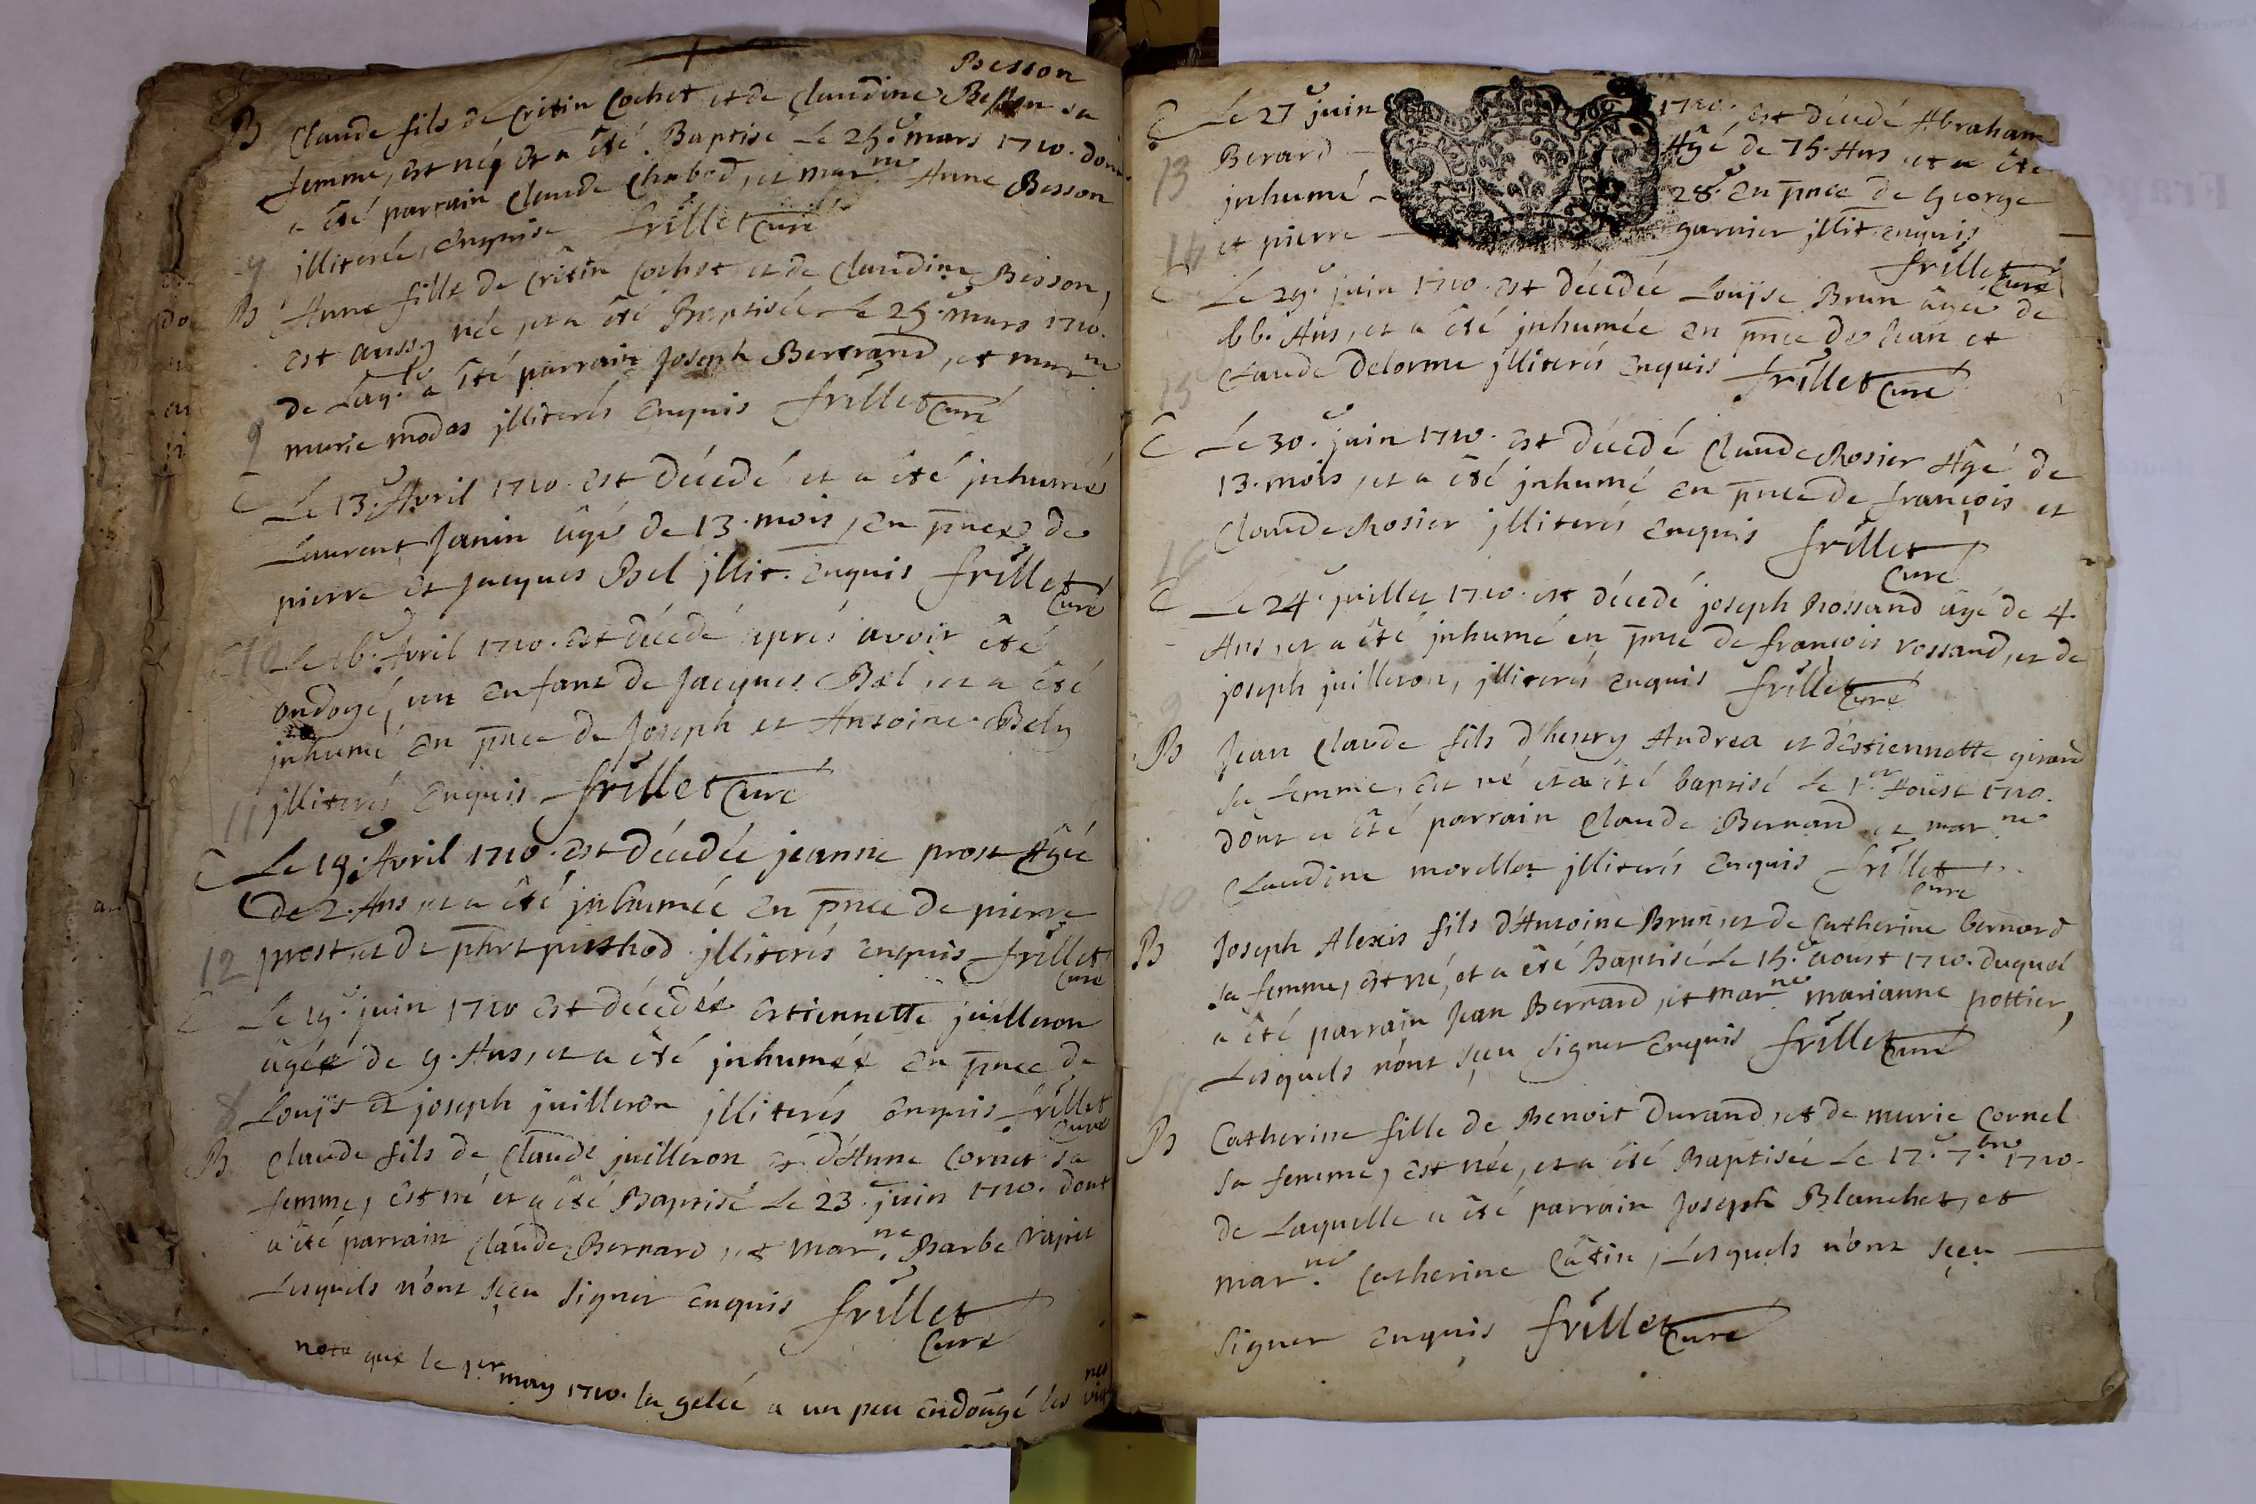 Besson
B Claude fils de Cristin Cochet et de Claudine Besson sa
femme, est né et a êté Baptisé Le 25.e mars 1710. dont
a êté parrain Claude Chabod, et mar.ne Anne Besson
illiterés, enquis frillet Curé
9
B Anne fille de Cristin Cochet et de Claudine Besson,
est aussy née, et a êté Baptisée Le 25.e mars 1710.
de Laq.le a êté parrain Joseph Bertrand, et mar.ne
marie modas jlliterés enquis frillet Curé
9
C Le 13.e Avril 1710. est décedé et a êté jnhumé
Laurent Janin âgé de 13. mois, en pnce de
pierre et Jacques Bel jllit. enquis frillet
Curé
10 Le 16.e Avril 1710. est décedé aprés avoir êté
ondoyé, un enfant de Jacques Bel, et a êté
jnhumé en pnce de Joseph et Antoine Bely
jlliterés enquis frillet Curé
11
C Le 19.e Avril 1710. est décedée jeanne prost Agée
De 2. Ans, et a êté jnhumée en pnce de pierre
12 prost, et de jlliterés enquis frillet
Curé
C Le 19.e juin 1710 est décedée estiennette juilleron
âgée de 9. Ans, et a êté jnhumée en pnce de
8 Louÿs et joseph juilleron jlliterés enquis frillet
Curé
B Claude fils de Claude juilleron et d'Anne Cornet sa
femme, est né et a êté Baptisé Le 23.e juin 1710. dont
a êté parrain Claude Bernard, et mar.ne Barbe
Lesquels n'ont sçeu signer enquis frillet
Curé
nota que le 1.er may 1710. la gelée a un peu endomgé les vignes
C Le 27.e juin 1710. est décedé Abraham
13 Berard Agé de 75. Ans, et a êté
jnhumé 28.e en pnce de George
14 et pierre garnier jllit. enquis
frillet Curé
C Le 29.e juin 1710. est décedée Louÿse Brun âgée de
66. Ans, et a êté jnhumée en pnce de Jean et
15 Claude Delorme jlliterés enquis frillet Curé
C Le 30.e juin 1710. est décedé Claude Rosier Agé de
13. mois, et a êté jnhumé en pnce de françois et
16 Claude Rosier jlliterés enquis frillet
Curé
C Le 24.e juillet 1710. est décedé joseph Rossand âgé de 4.
Ans, et a êté jnhumé en pnce de françois rossand, et de
joseph juilleron, jlliterés enquis frillet Curé
9
B Jean Claude fils d'henry Andrea et d'estiennette girand
sa femme, est né et a êté baptisé Le 1.er Aoust 1710.
dont a êté parrain Claude Bernard, et mar.ne
Claudine morellet jlliterés enquis frillet
Curé
10
B Joseph Alexis fils d'Antoine Brun, et de Catherine bernard
sa femme, est né, et a êté Baptisé Le 15.e aoust 1710. duquel
a êté parrain Jean Bernard, et mar.ne marianne pottier,
Lesquels n'ont sçeu signer enquis frillet Curé
11
B Catherine fille de Benoit Durand, et de marie Cornel
sa femme, est née, et a êté Baptisée Le 17.e 7.bre 1710.
de Laquelle a êté parrain Joseph Blanchet, et
mar.ne Catherine Câtin, Lesquels n'ont sçeu
signer enquis frillet Curé